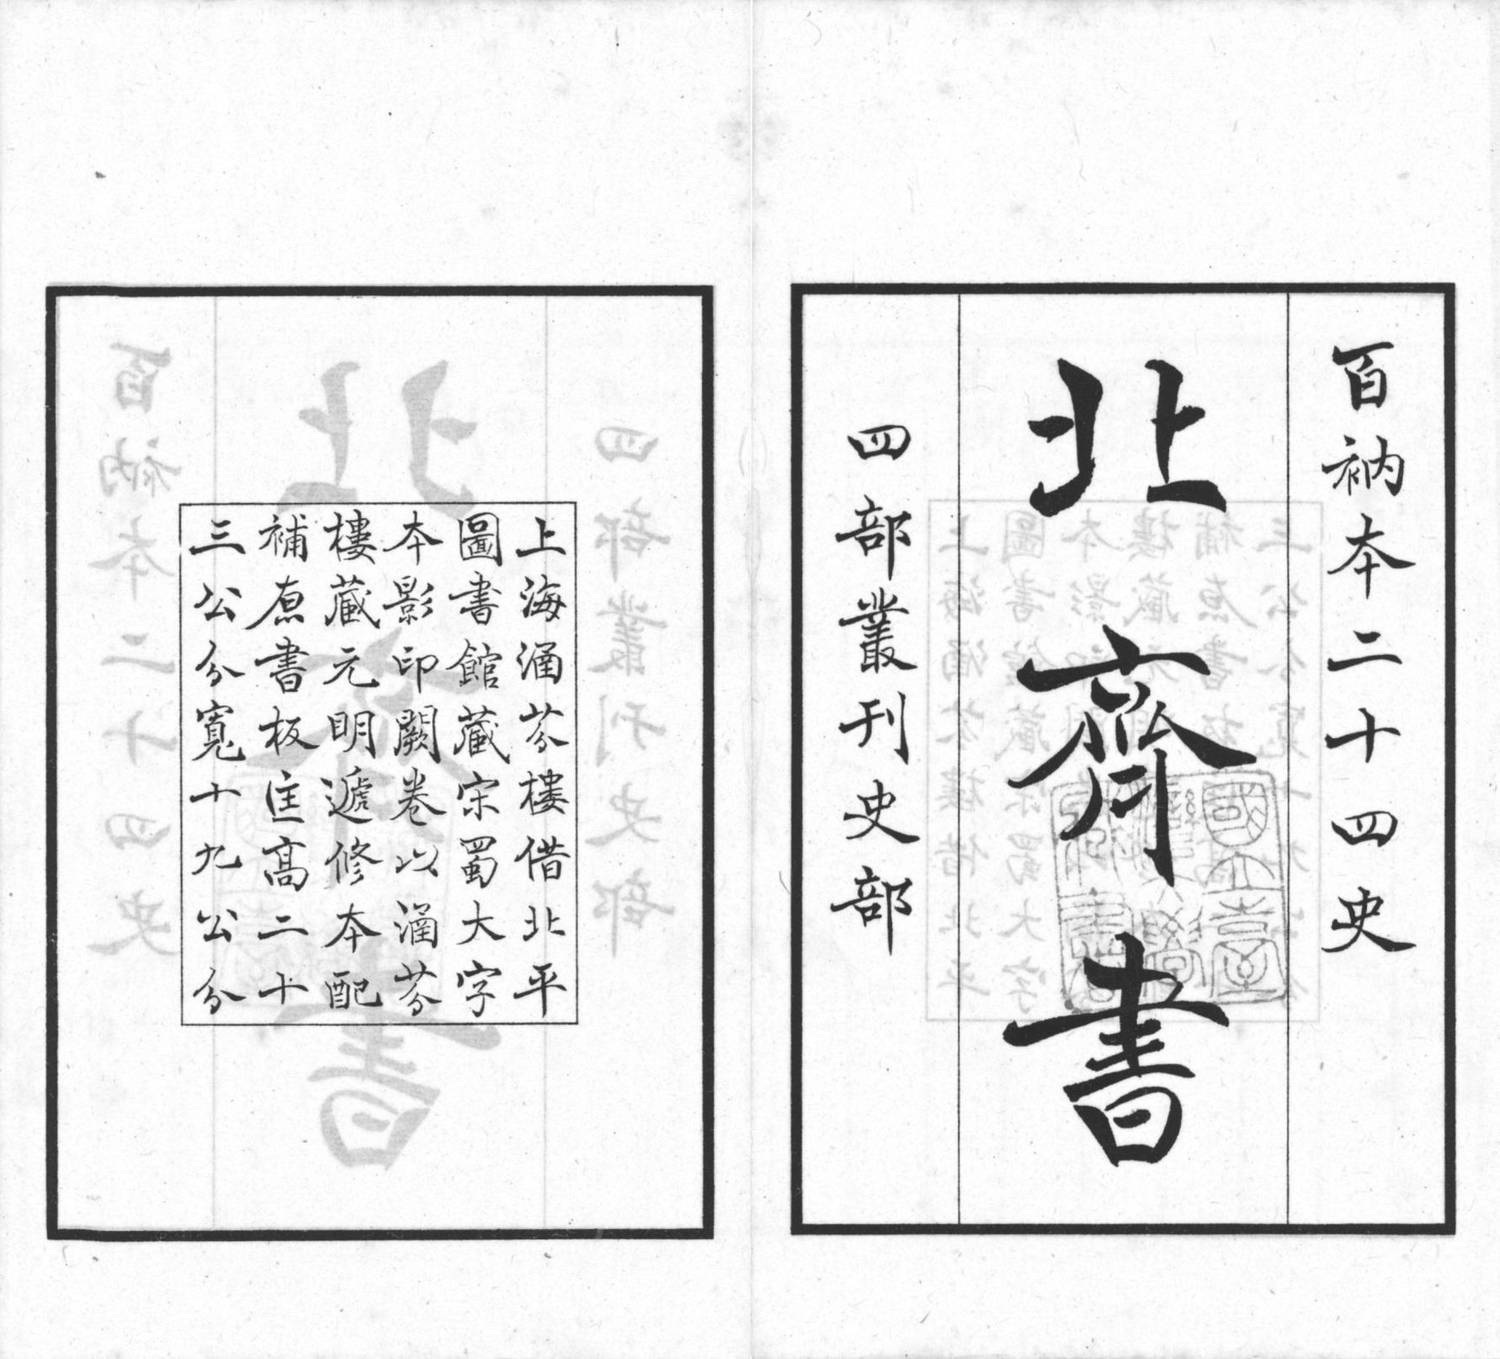 百衲本二十四史
北齊書
四部叢刊史部
上海涵芬樓借北平
圖書館藏宋蜀大字
本影印闕卷以涵芬
樓藏元明遞修本配
補原書板匡高二十
三公分寬十九公分